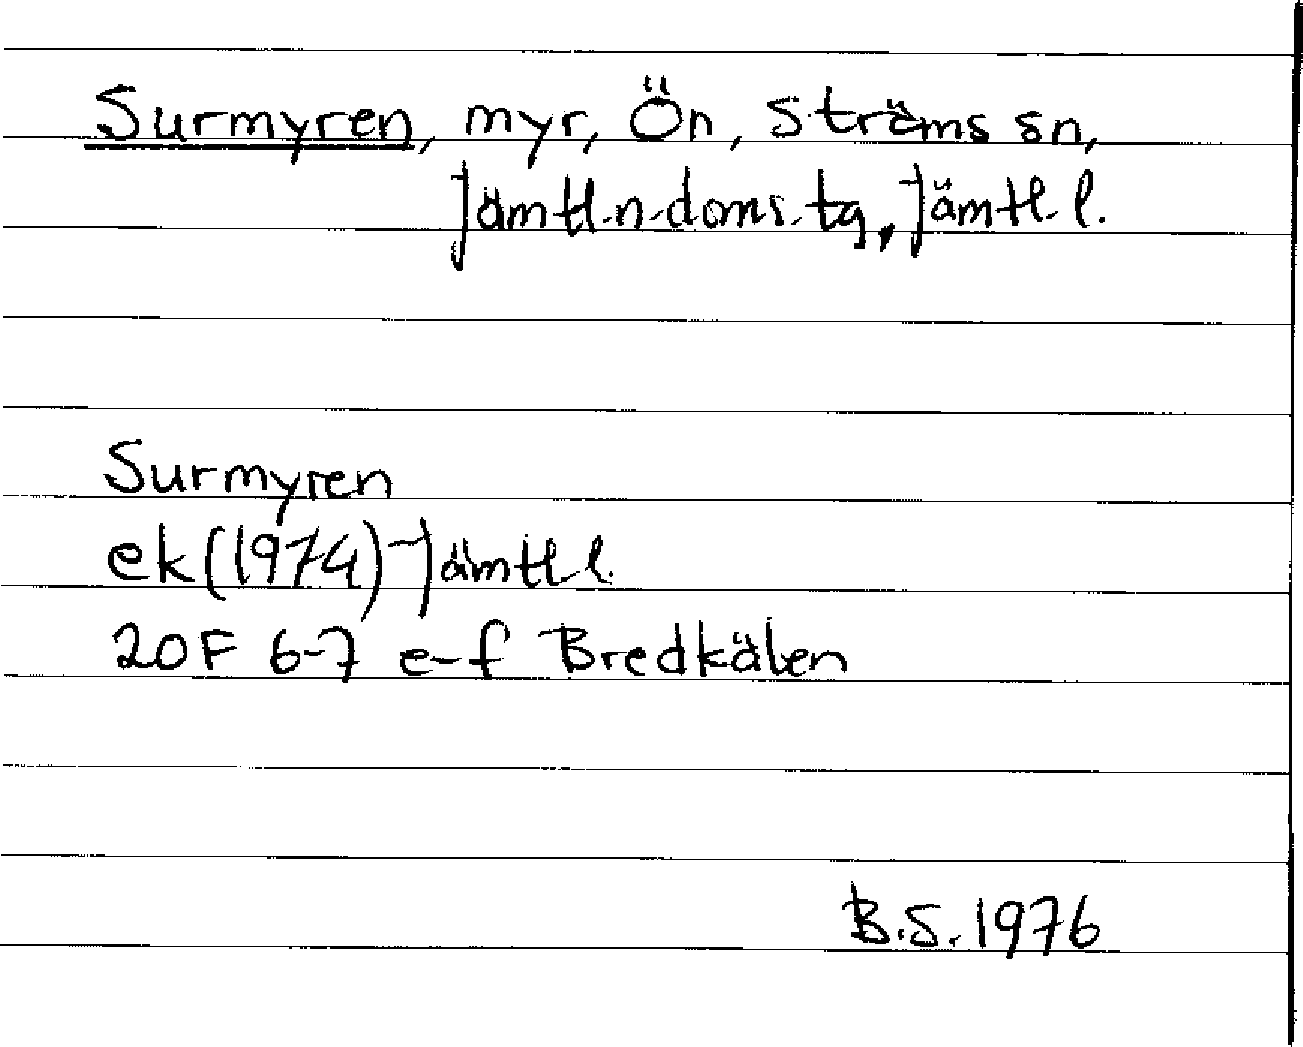 Surmyren, myr, Ön, Ströms sn,
Jämtl.n.doms.tg, Jämtl.l.
Surmyren
ek(1974) Jämtl l.
20F 6-7 e-f Bredkälen
B.S. 1976